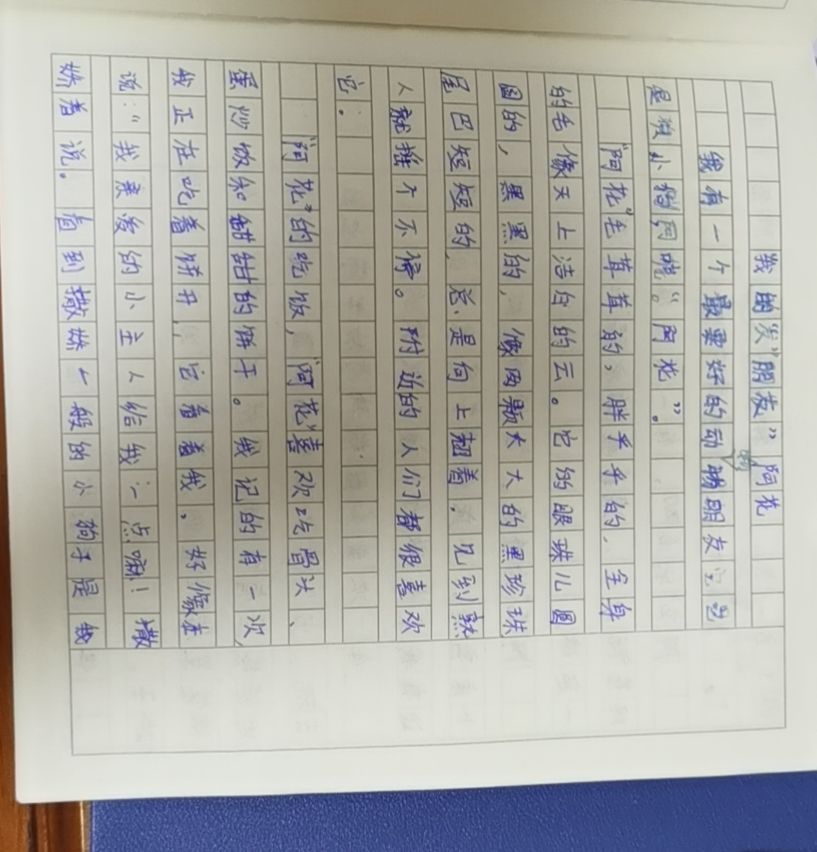 我的“朋友”阿花
我有一个最要好的动物朋友它也
是狼小狗阿嘵。“阿花”。
“阿花”毛草草的，胖乎乎的，全身
的毛像天上洁白的云。它的眼珠儿圆
圆的，黑黑的，像两颗大大的黑珍珠
尾巴短短的，总是向上翘着。见到熟
人就摇个不停。附近的人们都很喜欢
它。
“阿花”的吃饭，“阿花”喜欢吃骨头、
蛋炒饭和甜甜的饼干。我记的有一次，
我正在吃着饼干，它看着我。好像在
说：“我亲爱的小主人给我一点嘛！撒
娇着说。看到撒娇一般的小狗子是我